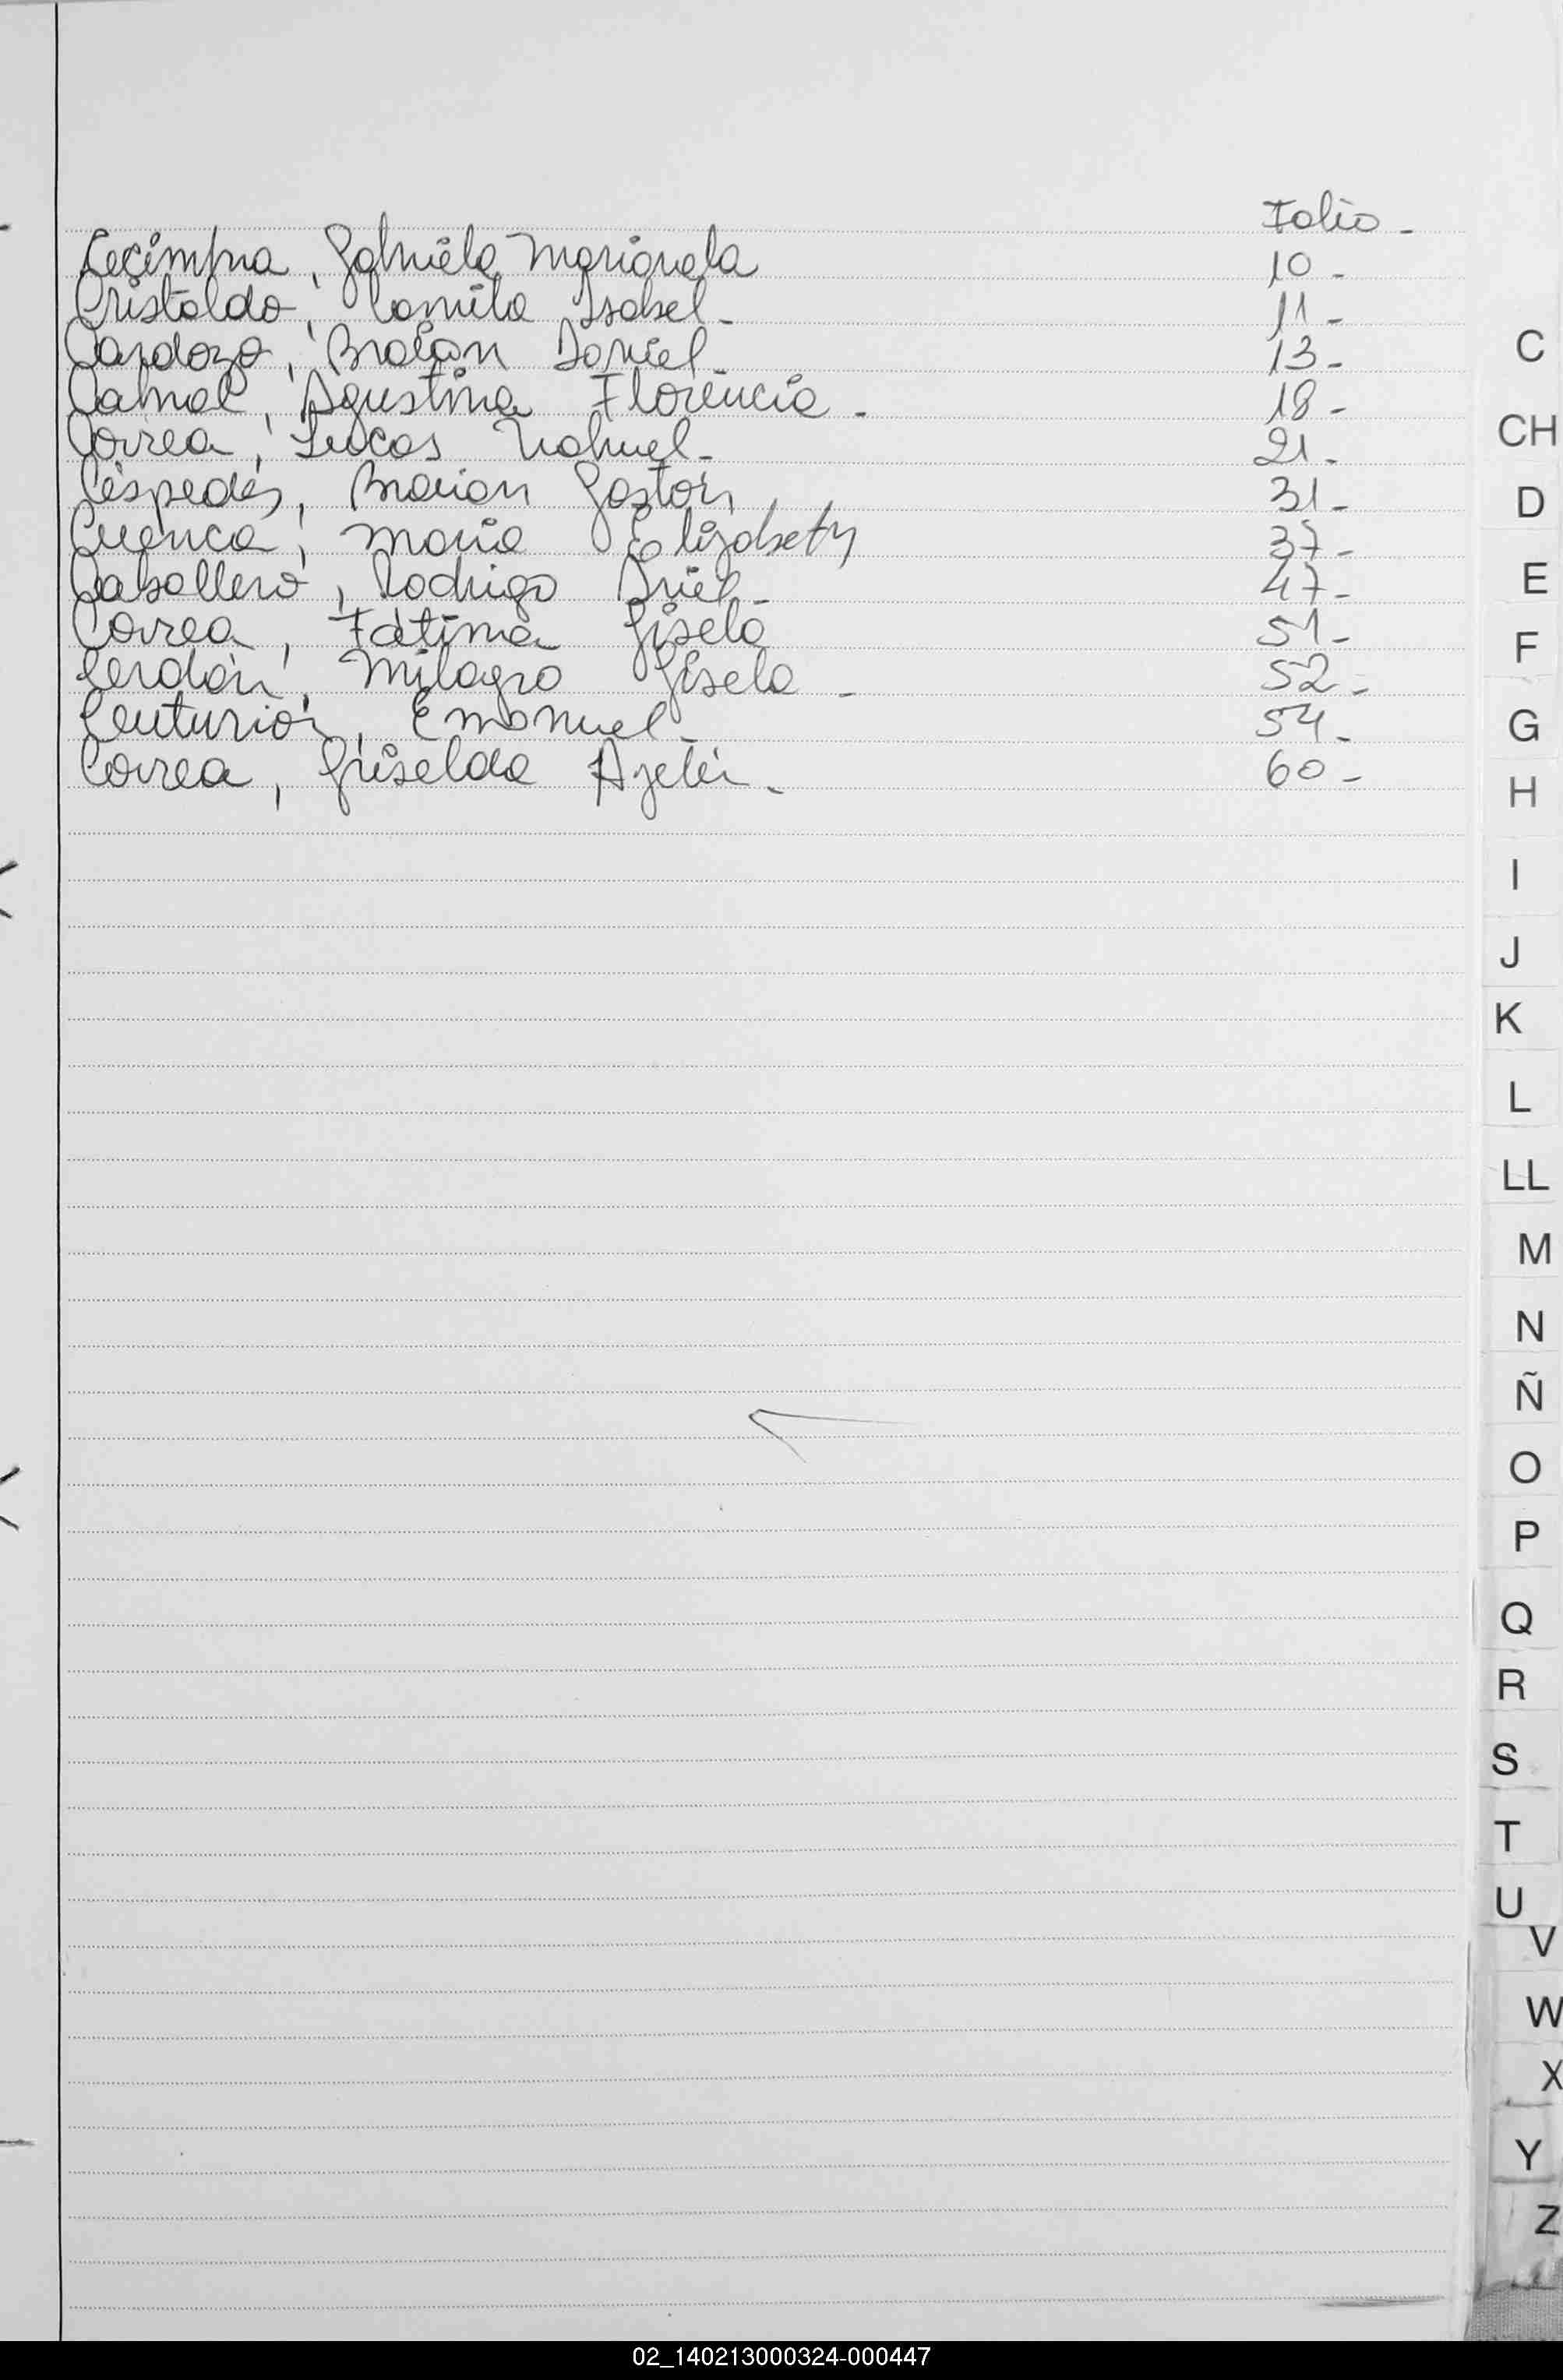 Folio -
Gabriela Marianela 10 -
Cristaldo, Camila Isabel - 11 -
Cardozo, Braian Daniel - 13 -
Cabral, Agustina Florencia - 18 -
Correa, Lucas Nahuel - 21 -
Céspedes, Braian Gastón 31 -
Cuenca, Maria Elizabeth 37 -
Caballero, Rodrigo Ariel - 47 -
Correa, Fátima Gisela 51 -
Cerdán, Milagro Gisela - 52 -
Centurión, Emanuel - 54 -
Correa, Griselda - 60 -
C
CH
D
E
F
G
H
I
J
K
L
LL
M
N
Ñ
O
P
Q
R
S
T
U
V
W
X
Y
Z
02_140213000324-000447